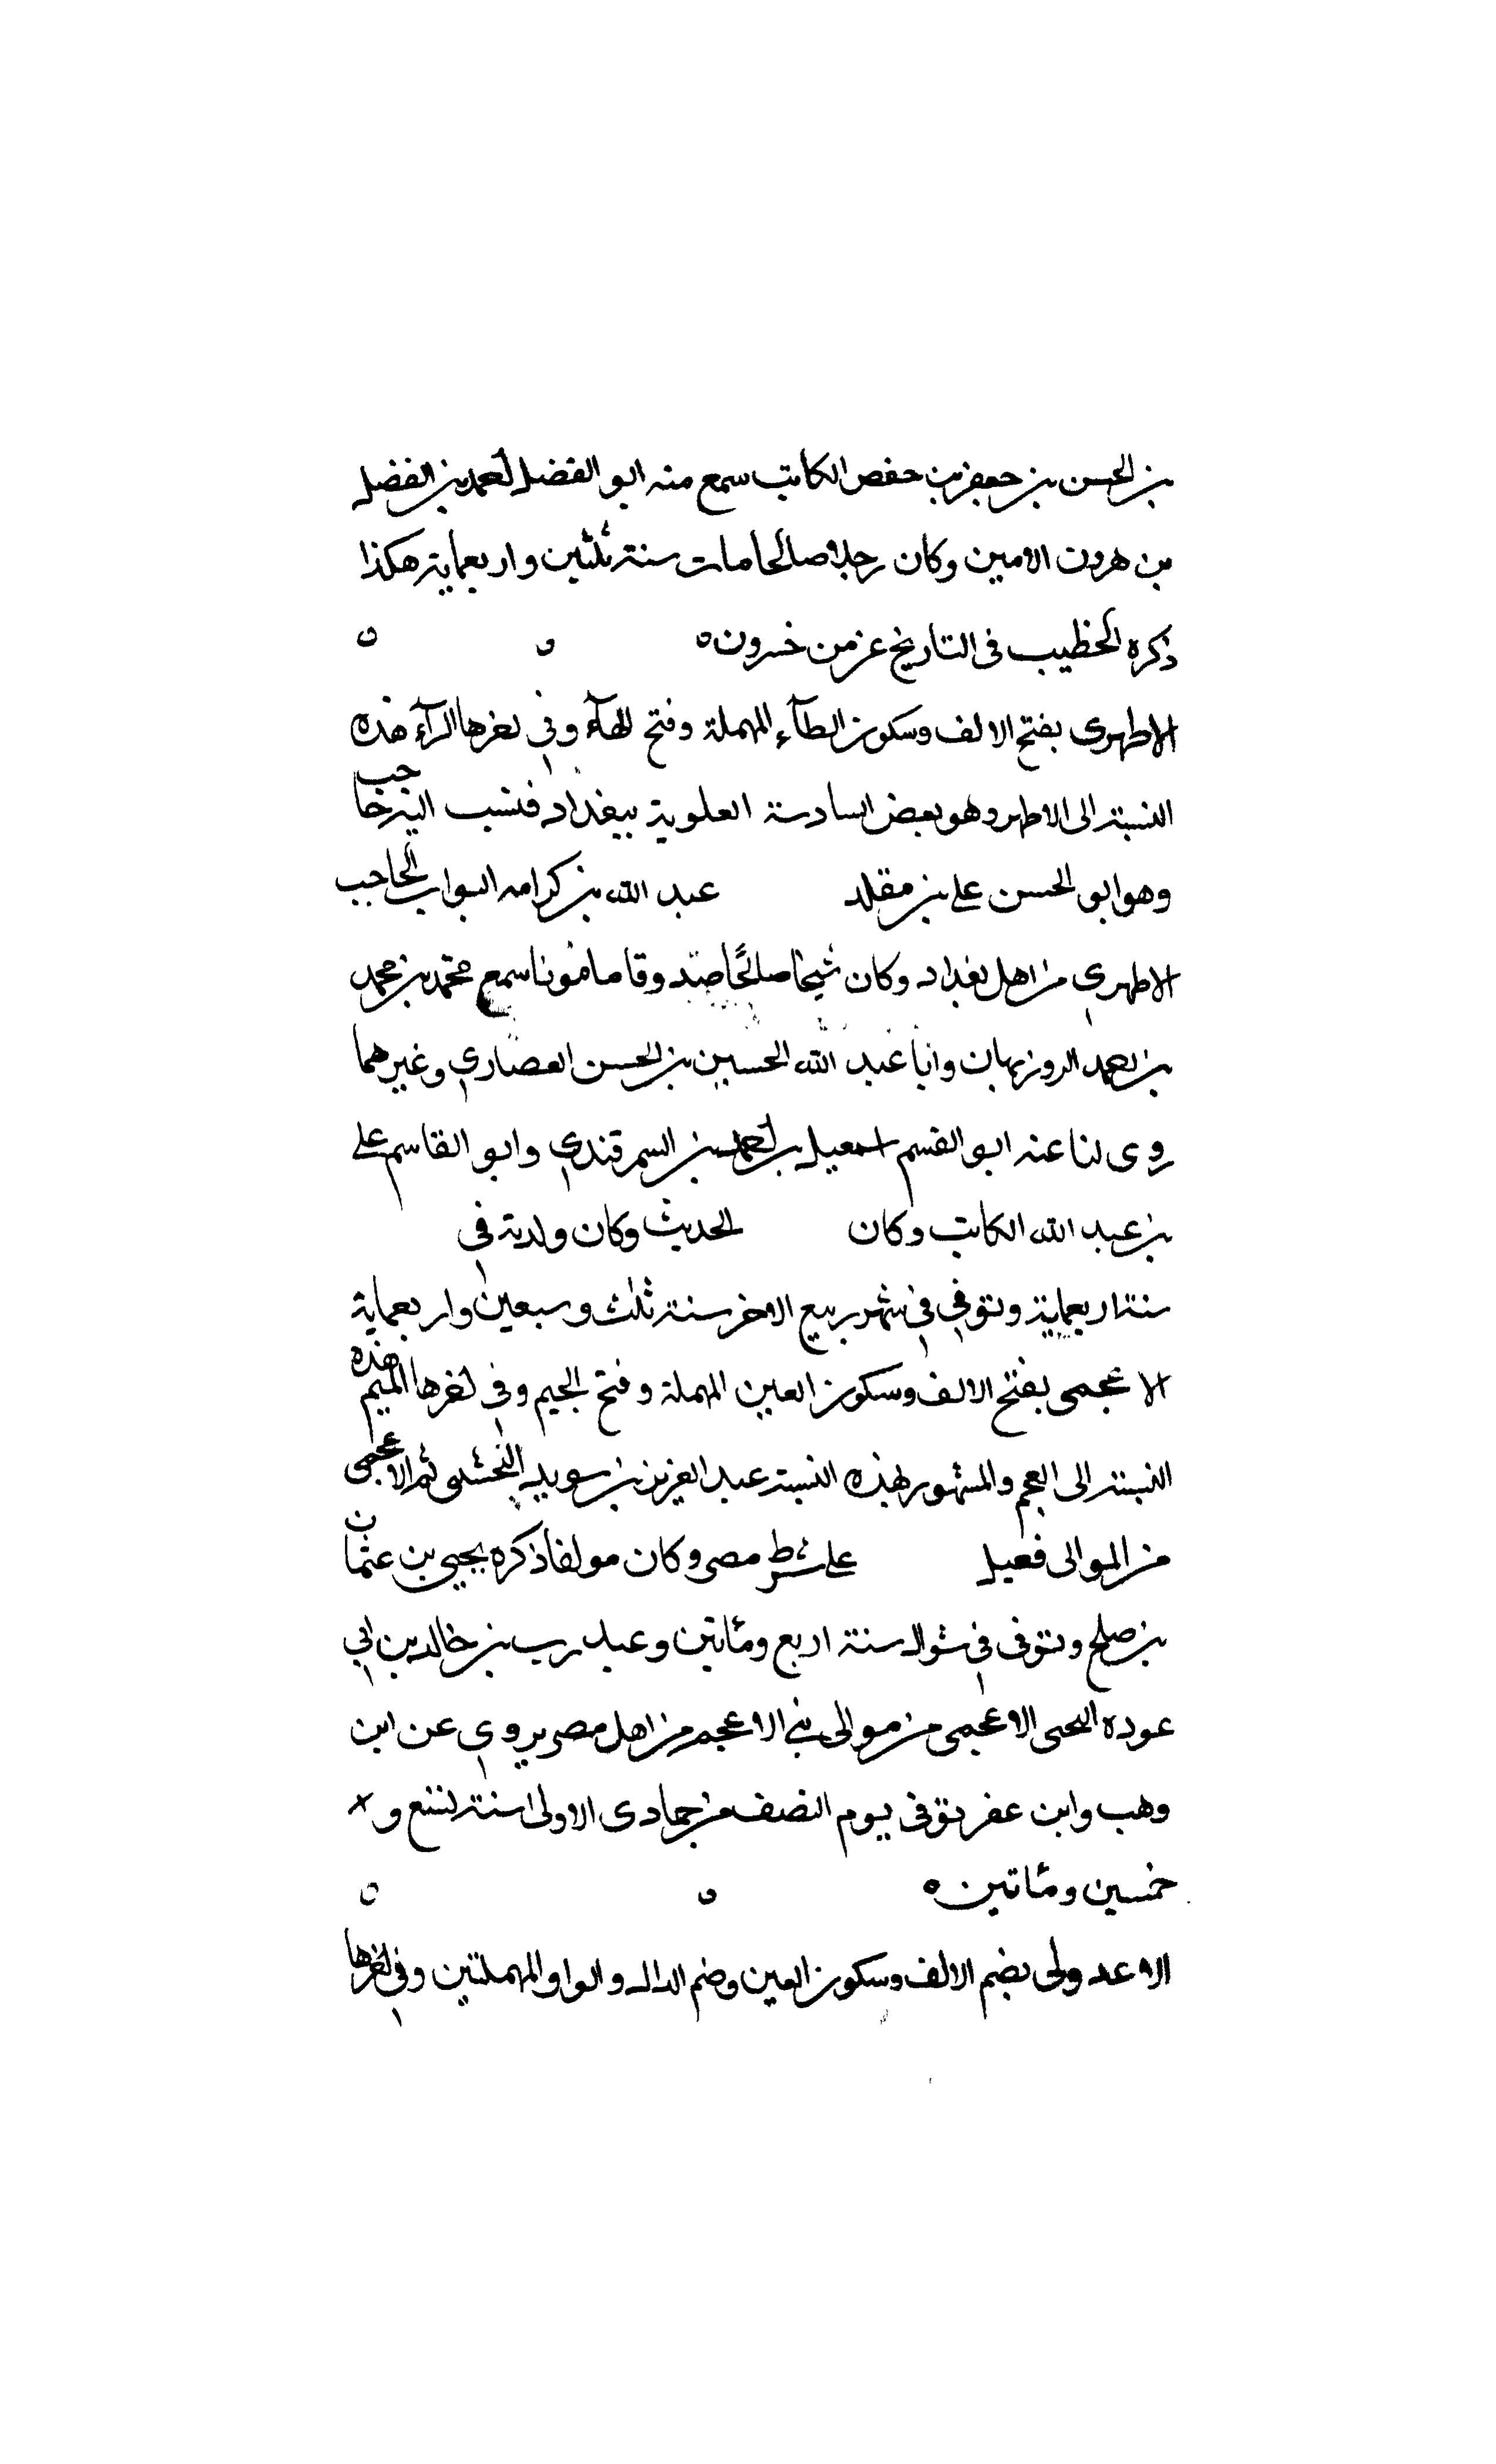 بن الحسن بن جعفر بن حفص الكاتب سمع منه ابو الفضل احمد بن الفضل
بن هرون الامين وكان رجلا صالحا مات سنة ثلثين واربعماية هكذا
ذكره الخطيب فى التاريخ عن من خسرون
الاطهرى بفتح الالف وسكون الطآء المهملة وفتح الهآء وفي اخرها الرآء هذه
النسبة الى الاطهر وهو بعض السادة العلوية ببغداد فنسب اليه حاجب
وهو ابو الحسن على بن مقلد عبد الله بن كرامه البواب الحاجب
الاطهري من اهل بغداد وكان شيخا صالحًا صدوقا مامونا سمع محمد بن محمد
بن احمد الروزبهان وابا عبد الله الحسين بن الحسن الغضاري وغيرهما
روى لنا عنه ابو القسم اسمعيل بن احمد بن السمرقندي وابو القاسم على
بن عبد الله الكاتب وكان الحديث وكان ولدته في
سنة اربعماية وتوفي في شهر ربيع الاخر سنة ثلث وسبعين واربعماية
الاعجمى بفتح الالف وسكون العين المهملة وفتح الجيم وفي اخرها الميم هذه
النسبة الى العجم والمشهور بهذه النسبة عبد العزيز بن سويد ثم الاعجمى
من الموالى على شرط مصر وكان مولفا ذكره يحيى بن عثمان
بن صلح وتوفى في شوال سنة اربع ومئاتين وعبد رب بن خالد بن ابي
عوده الاعجمى من موالى بني الاعجم من اهل مصر يروي عن ابن
وهب وابن عفر توفى يوم النصف من جمادى الاولى سنة تسع و
خمسين ومئاتين
الاعدولى بضم الالف وسكون العين وضم الدال والواو المهملتين وفي اخرها